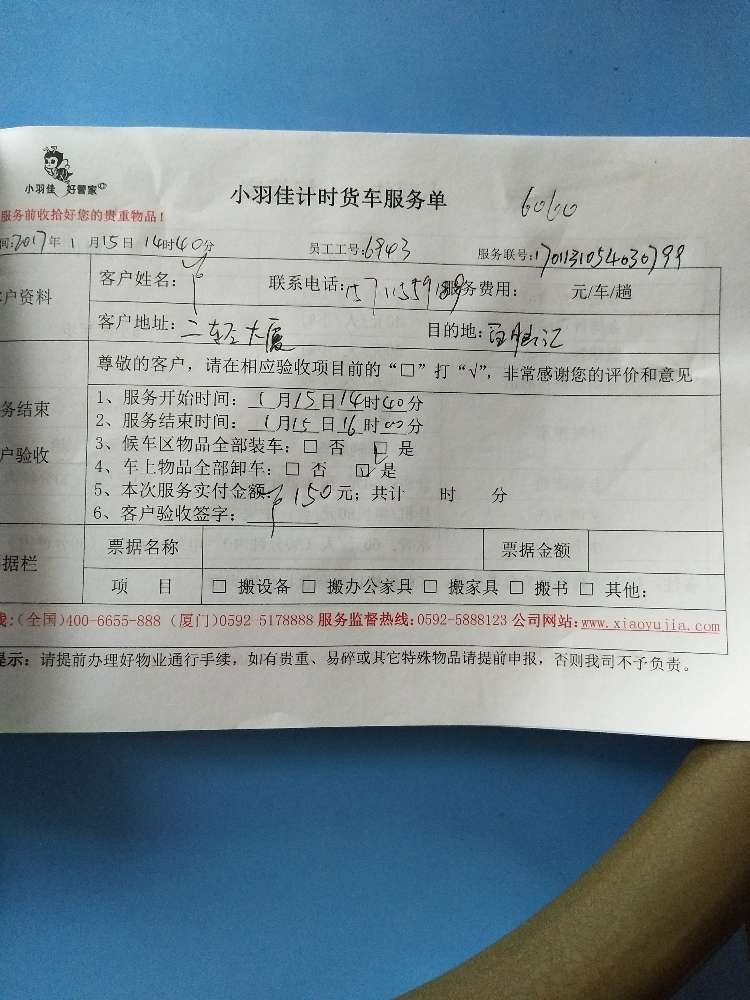 小羽佳 好管家
小羽佳计时货车服务单 6060
服务前收拾好您的贵重物品！
间:2017年1月15日14时40分 员工工号:6943 服务联号:1701131054030799
户资料 客户姓名： 联系电话:15711559189 服务费用： 元/车/趟
客户地址：二轻大厦 目的地：
尊敬的客户，请在相应验收项目前的“□”打“√”，非常感谢您的评价和意见
务结束
户验收
1、服务开始时间：1月15日14时40分
2、服务结束时间：1月15日16时00分
3、候车区物品全部装车：□ 否 □ 是
4、车上物品全部卸车：□ 否 ☑ 是
5、本次服务实付金额：150元；共计 时 分
6、客户验收签字：
据栏 票据名称 票据金额
项 目 □ 搬设备 □ 搬办公家具 □ 搬家具 □ 搬书 □ 其他：
线:(全国)400-6655-888 (厦门)0592 5178888 服务监督热线:0592-5888123 公司网站:www.xiaoyujia.com
提示：请提前办理好物业通行手续，如有贵重、易碎或其它特殊物品请提前申报，否则我司不予负责。